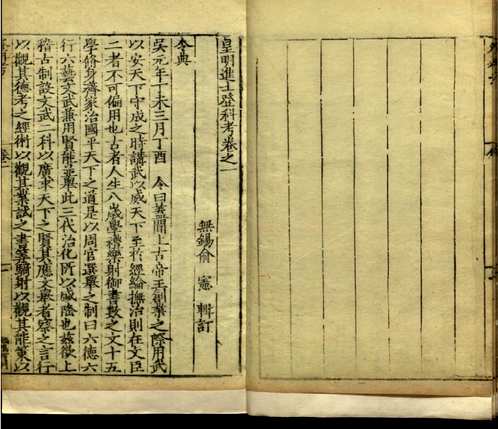 皇明進士登科考卷之一
無錫俞憲輯訂
令典
吳元年丁未三月丁酉 令曰蓋聞上古帝王創業之際用武
以安天下守成之時講武以威天下至於經綸撫治則在文臣
二者不可偏用也古者人生八歲學禮樂射御書數之文十五
學修身齊家治國平天下之道是以周官選舉之制曰六德六
行六藝文武兼用賢能並舉此三代治化所以盛隆也茲欲上
稽古制設文武二科以廣求天下之賢其應文舉者察之言行
以觀其德考之經術以觀其業試之書筭騎射以觀其能策以